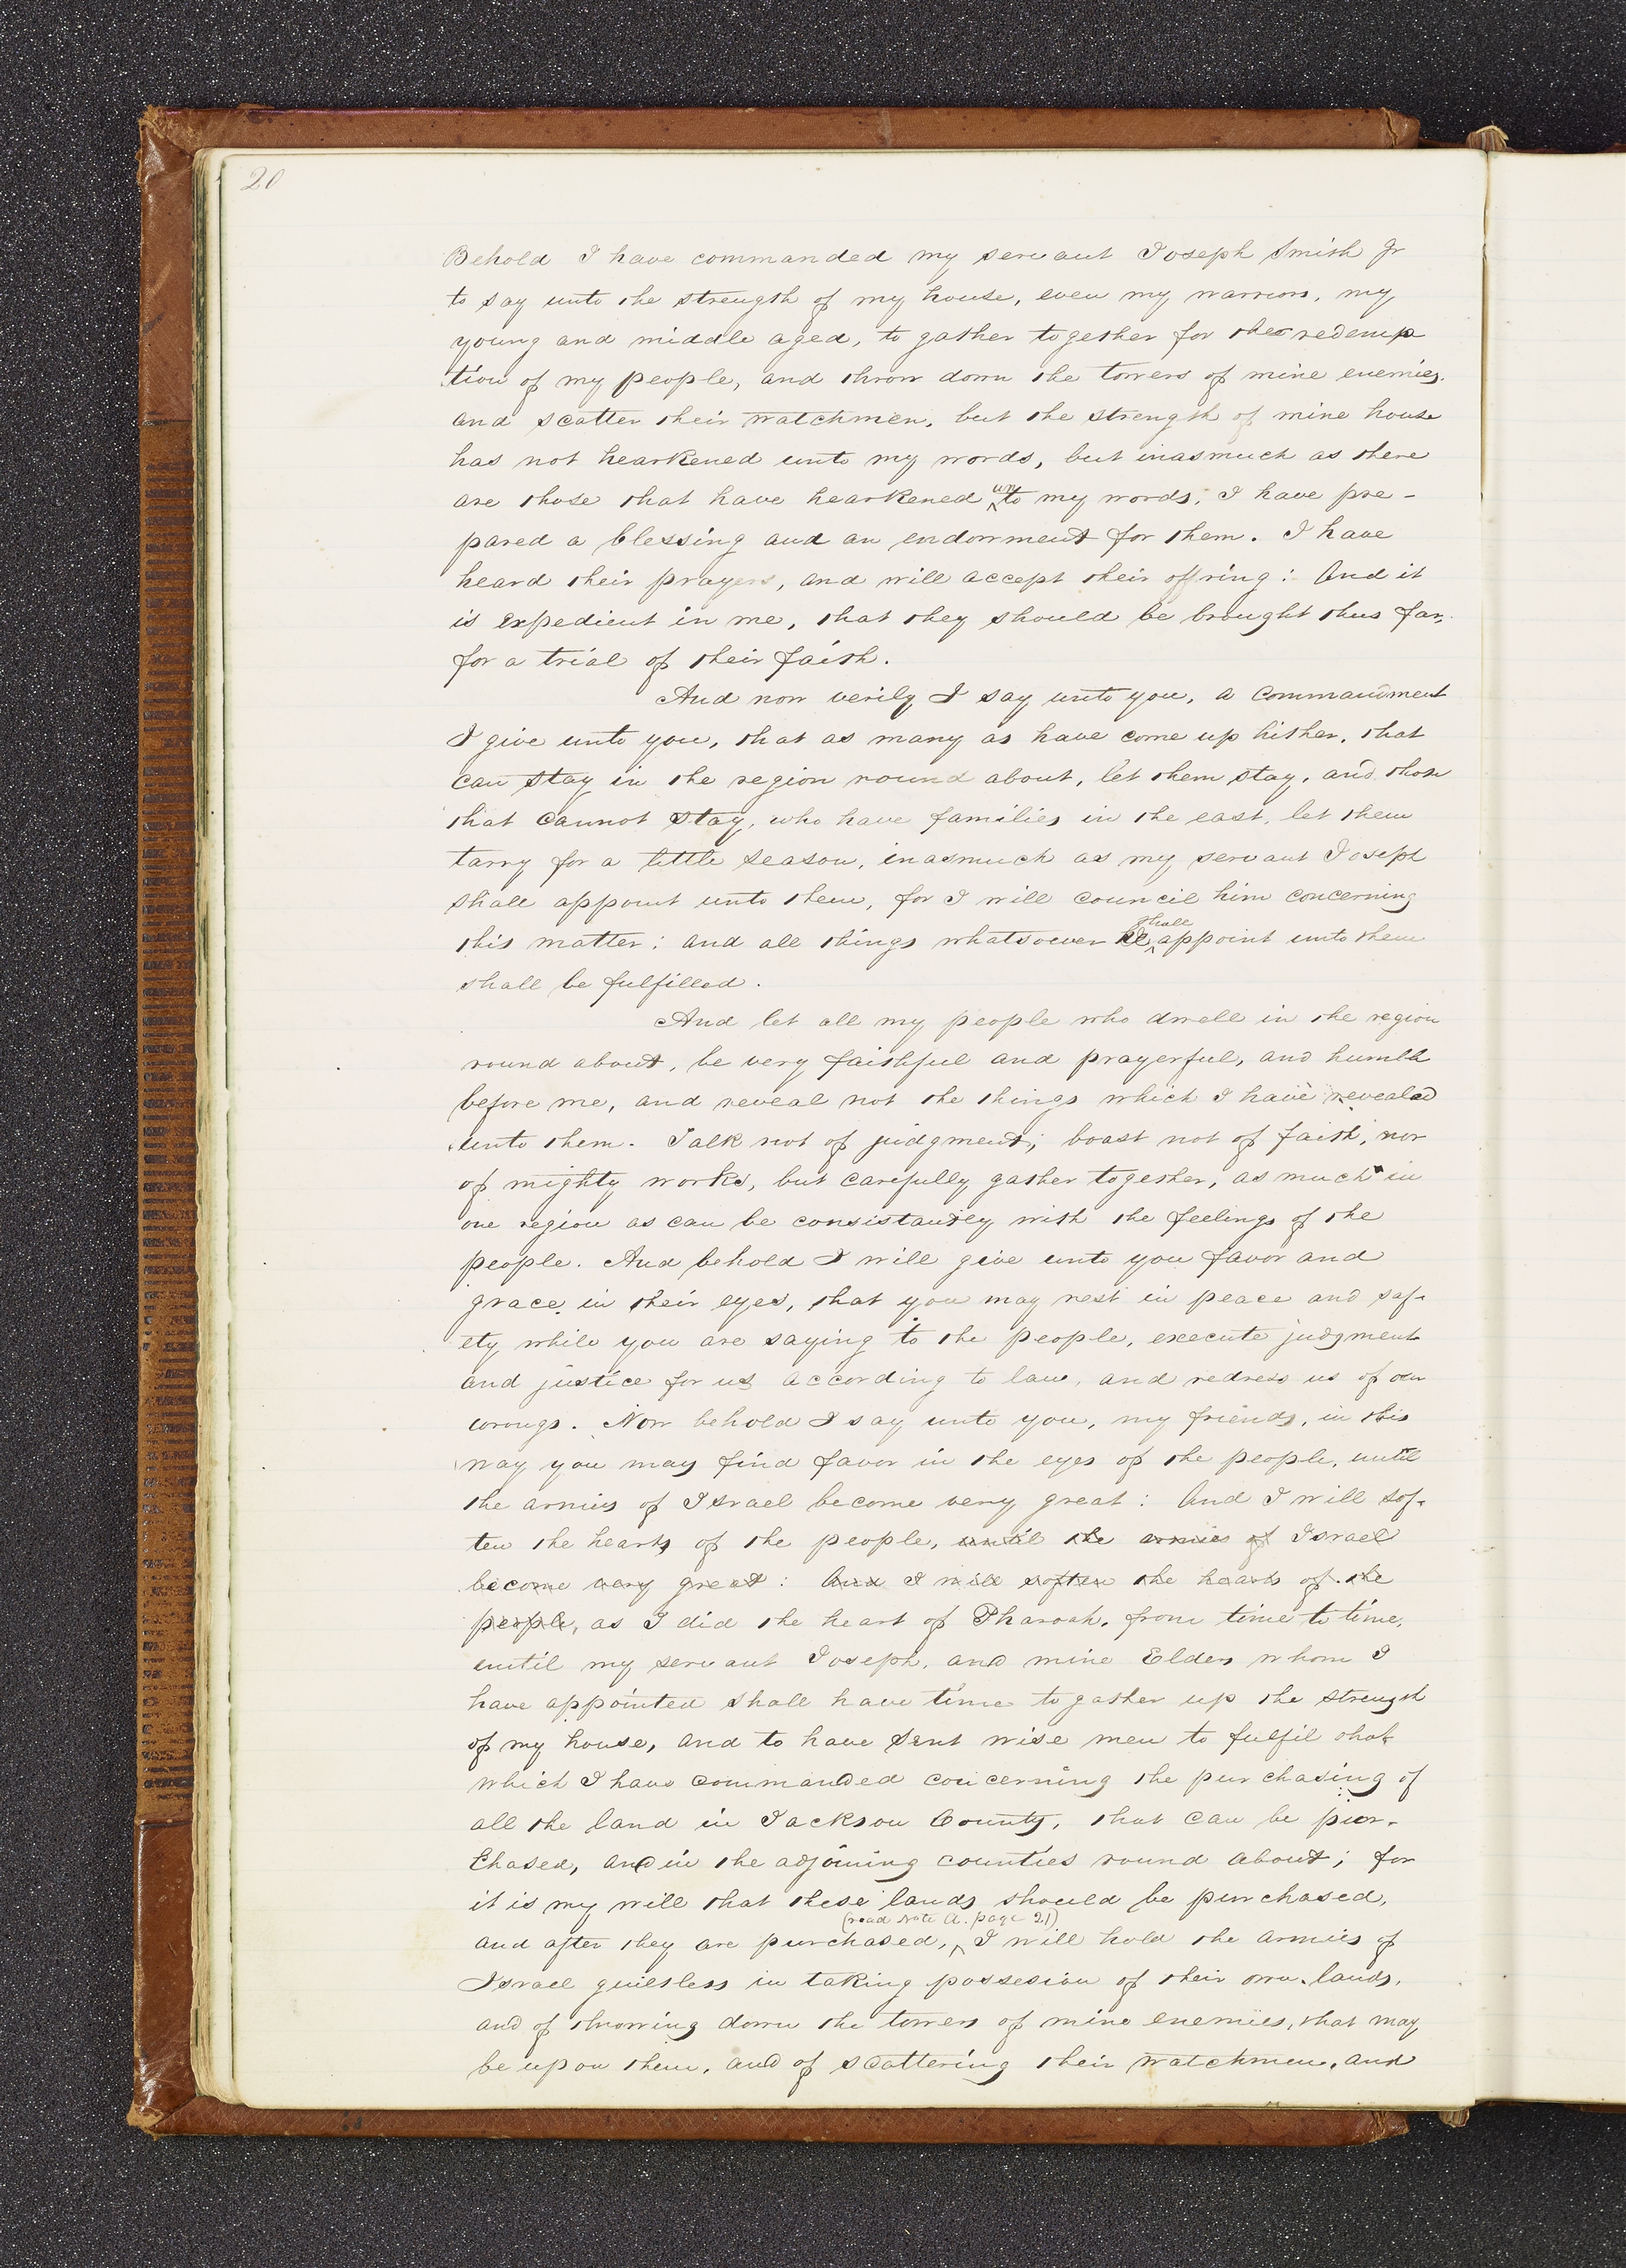 20
Behold I have commanded my servant Joseph Smith Jr
to say unto the strength of my house, even my warriors, my
young and middle aged, to gather together for the redemp
tion of my people, and throw down the towers of mine enemies.
and scatter their watchmen, but the strength of mine house
has not hearkened unto my words, but inasmuch as there
are those that have hearkened unto my words, I have pre-
pared a blessing and an endowment for them. I have
heard their prayers, and will accept their offring: And it
is expedient in me, that they should be brought thus far,
for a trial of their faith.
And now verily I say unto you, a commandment
I give unto you, that as many as have come up hither, that
can stay in the region round about, let them stay, and those
that cannot stay, who have families in the east, let them
tarry for a little season, inasmuch as my servant Joseph
shall appoint unto them, for I will council him concerning
shall
this matter; and all things whatsoever he appoint unto them
shall be fulfilled.
And let all my people who dwell in the region
round about, be very faithful and prayerful, and humble
before me, and reveal not the things which I have revealed
unto them. Talk not of judgment, boast not of faith, nor
of mighty works, but carefully gather together, as much in
one region as can be consistantly with the feelings of the
people. And behold I will give unto you favor and
grace in their eyes, that you may rest in peace and saf-
ety while you are saying to the people, execute judgment
and justice for us according to law, and redress us of our
wrongs. Now behold I say unto you, my friends, in this
way you may find favor in the eyes of the people, until
the armies of Israel become very great: And I will sof-
ten the hearts of the people, until the armies of Israel
become very great: And I will soften the hearts of the
people, as I did the heart of Pharoah, from time to time,
until my servant Joseph, and mine Elders whom I
have appointed shall have time to gather up the strength
of my house, and to have sent wise men to fulfil that
which I have commanded concerning the purchasing of
all the land in Jackson County, that can be pur-
chased, and in the adjoining counties round about; for
it is my will that these lands should be purchased,
(read note A. page 21)
and after they are purchased, I will hold the armies of
Israel guiltless in taking possesion of their own lands,
and of throwing down the towers of mine enemies, that may
be upon them, and of scattering their watchmen, and